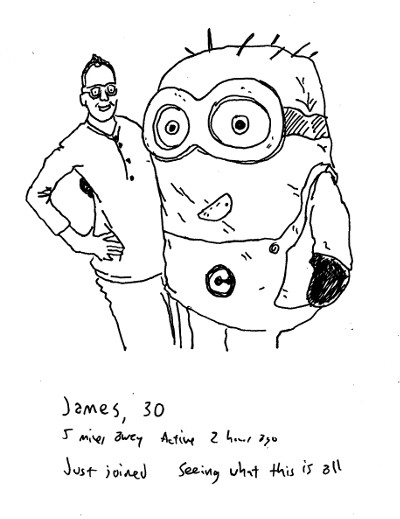 James, 30
5 miles away Active 2 hours ago
Just joined Seeing what this is all